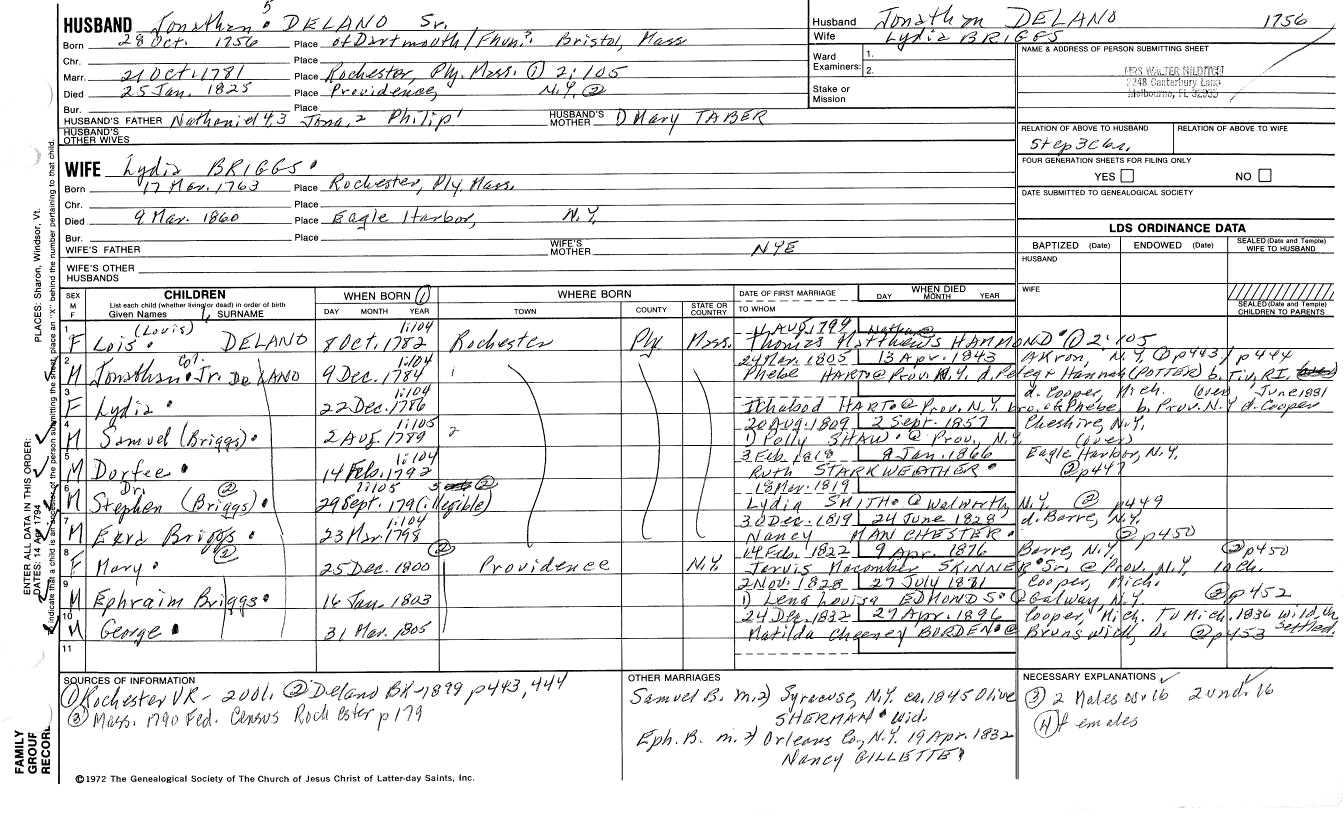 HUSBAND Jonathan 5 DELANO Sr.
Born 28 Oct. 1756 Place of Dartmouth/ Bristol, Mass
Chr. Place
Marr. 21 Oct. 1781 Place Rochester, Ply. Mass. ① 2:105
Died 25 Jan. 1825 Place Providence, N.Y. ②
Bur. Place
HUSBAND'S FATHER Nathaniel 4,3 Jona. 2 Philip 1 HUSBAND'S MOTHER Mary TABER
HUSBAND'S OTHER WIVES
WIFE Lydia BRIGGS
Born 17 Mar. 1763 Place Rochester, Ply. Mass.
Chr. Place
Died 9 Mar. 1860 Place Eagle Harbor, N.Y.
Bur. Place
WIFE'S FATHER WIFE'S MOTHER NYE
WIFE'S OTHER HUSBANDS
Husband Jonathan DELANO 1756
Wife Lydia BRIGGS
Ward Examiners: 1.
2.
Stake or Mission
NAME & ADDRESS OF PERSON SUBMITTING SHEET
MRS WALTER
2248 Canterbury Lane
Melbourne, FL
RELATION OF ABOVE TO HUSBAND RELATION OF ABOVE TO WIFE
Step
FOUR GENERATION SHEETS FOR FILING ONLY
YES NO
DATE SUBMITTED TO GENEALOGICAL SOCIETY
LDS ORDINANCE DATA
BAPTIZED (Date) ENDOWED (Date) SEALED (Date and Temple) WIFE TO HUSBAND
HUSBAND
WIFE
SEALED (Date and Temple) CHILDREN TO PARENTS
SEX M F CHILDREN List each child (whether living or dead) in order of birth Given Names SURNAME
WHEN BORN ① DAY MONTH YEAR
WHERE BORN TOWN COUNTY STATE OR COUNTRY
DATE OF FIRST MARRIAGE TO WHOM
WHEN DIED DAY MONTH YEAR
1 (Louis) 1:104 11 Aug. 1799
F Lois DELANO 8 Oct. 1782 Rochester Ply Mass. Thomas HAMMOND 2:105
2 Col. 1:104 24 Mar. 1805 13 Apr. 1843 Akron, N.Y. ② p443/p444
M Jonathan Jr. DELANO 9 Dec. 1784 Phebe HART @ Prov. N.Y. d. Peleg & Hannah (POTTER) b. Tiv, RI.
3 1:104 d. Cooper, Mich. (over) June 1881
F Lydia 22 Dec. 1786 Ichabod HART @ Prov. N.Y. bro. of Phebe b. Prov. N.Y d. Cooper
4 1:105 20 Aug. 1809 2 Sept. 1857 Cheshire, N.Y.
M Samuel (Briggs) 2 Aug. 1789 1) Polly SHAW @ Prov., N.Y. (over)
5 1:104 3 Feb. 1818 9 Jan. 1866 Eagle Harbor, N.Y.
M Dorfee 14 Feb. 1792 Ruth STARKWEATHER ② p447
6 Dr. ② 1:105 ② 18 Mar. 1819
M Stephen (Briggs) 29 Sept. 179(illegible) Lydia SMITH @ Walworth, N.Y. ② p449
7 1:104 30 Dec. 1819 24 June 1828 d. Barre, N.Y.
M Ezra Briggs 23 Mar 1798 Nancy MANCHESTER ② p450
8 ② ② 14 Feb. 1822 9 Apr. 1876 Barre, N.Y. ② p450
F Mary 25 Dec. 1800 Providence N.Y. Jarvis Macomber SKINNER Sr. @ Prov. N.Y. 10 Ch.
9 2 Nov. 1828 27 July 1881 Cooper, Mich.
M Ephraim Briggs 16 Jan. 1803 1) Lena Louisa EDMONDS @ Galway, N.Y. ② p452
10 24 Dec. 1832 27 Apr. 1896 Cooper, Mich. To Mich. 1836 wild
M George 31 Mar. 1805 Matilda Cheeney BURDEN @ Brunswick, ② p453 settled.
11
SOURCES OF INFORMATION
① Rochester VR - 2 vol. ② Delano BK - 1899 p443, 444
③ Mass. 1790 Fed. Census Rochester p179
OTHER MARRIAGES
Samuel B. m. 2) Syracuse, N.Y. ca. 1845 Olive
SHERMAN Wid.
Eph. B. m. 2) Orleans Co., N.Y. 19 Apr. 1832
Nancy GILLETTE
NECESSARY EXPLANATIONS
③ 2 Males ov. 16 2 und. 16
④ females
©1972 The Genealogical Society of The Church of Jesus Christ of Latter-day Saints, Inc.
FAMILY GROUP RECORD
ENTER ALL DATA IN THIS ORDER:
DATES: 14 Apr 1794
PLACES: Sharon, Windsor, Vt.